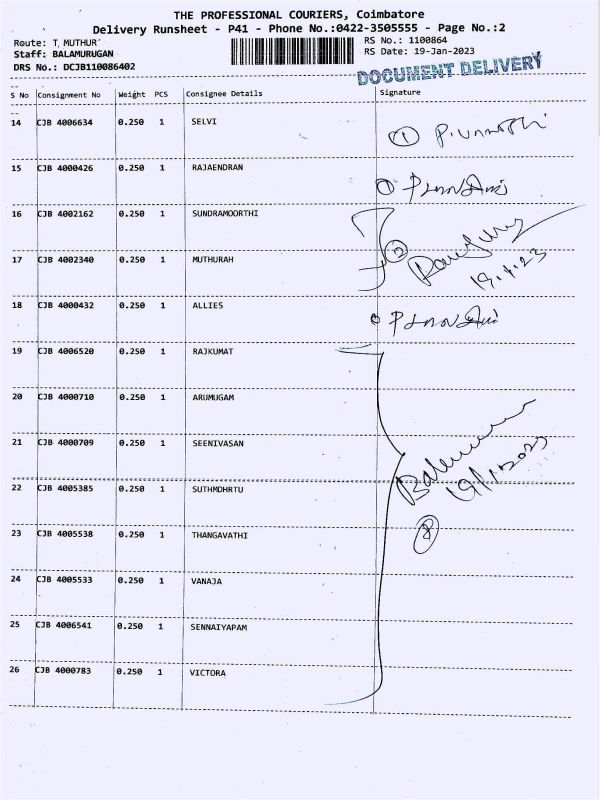 THE PROFESSIONAL COURIERS, Coimbatore
Delivery Runsheet - P41 - Phone No.:0422-3505555 - Page No.:2
Route: T MUTHUR
RS No.: 1100864
Staff: BALAMURUGAN
RS Date: 19-Jan-2023
DRS No.: DCJB110086402
DOCUMENT DELIVERY
S No Consignment No Weight PCS Consignee Details Signature
14 CJB 4006634 0.250 1 SELVI
1
15 CJB 4000426 0.250 1 RAJAENDRAN
1
16 CJB 4002162 0.250 1 SUNDRAMOORTHI
2
17 CJB 4002340 0.250 1 MUTHURAH
19.1.23
18 CJB 4000432 0.250 1 ALLIES
19 CJB 4006520 0.250 1 RAJKUMAT
20 CJB 4000710 0.250 1 ARUMUGAM
21 CJB 4000709 0.250 1 SEENIVASAN
19/1/2023
22 CJB 4005385 0.250 1 SUTHMDHRTU
8
23 CJB 4005538 0.250 1 THANGAVATHI
24 CJB 4005533 0.250 1 VANAJA
25 CJB 4006541 0.250 1 SENNAIYAPAM
26 CJB 4000783 0.250 1 VICTORA